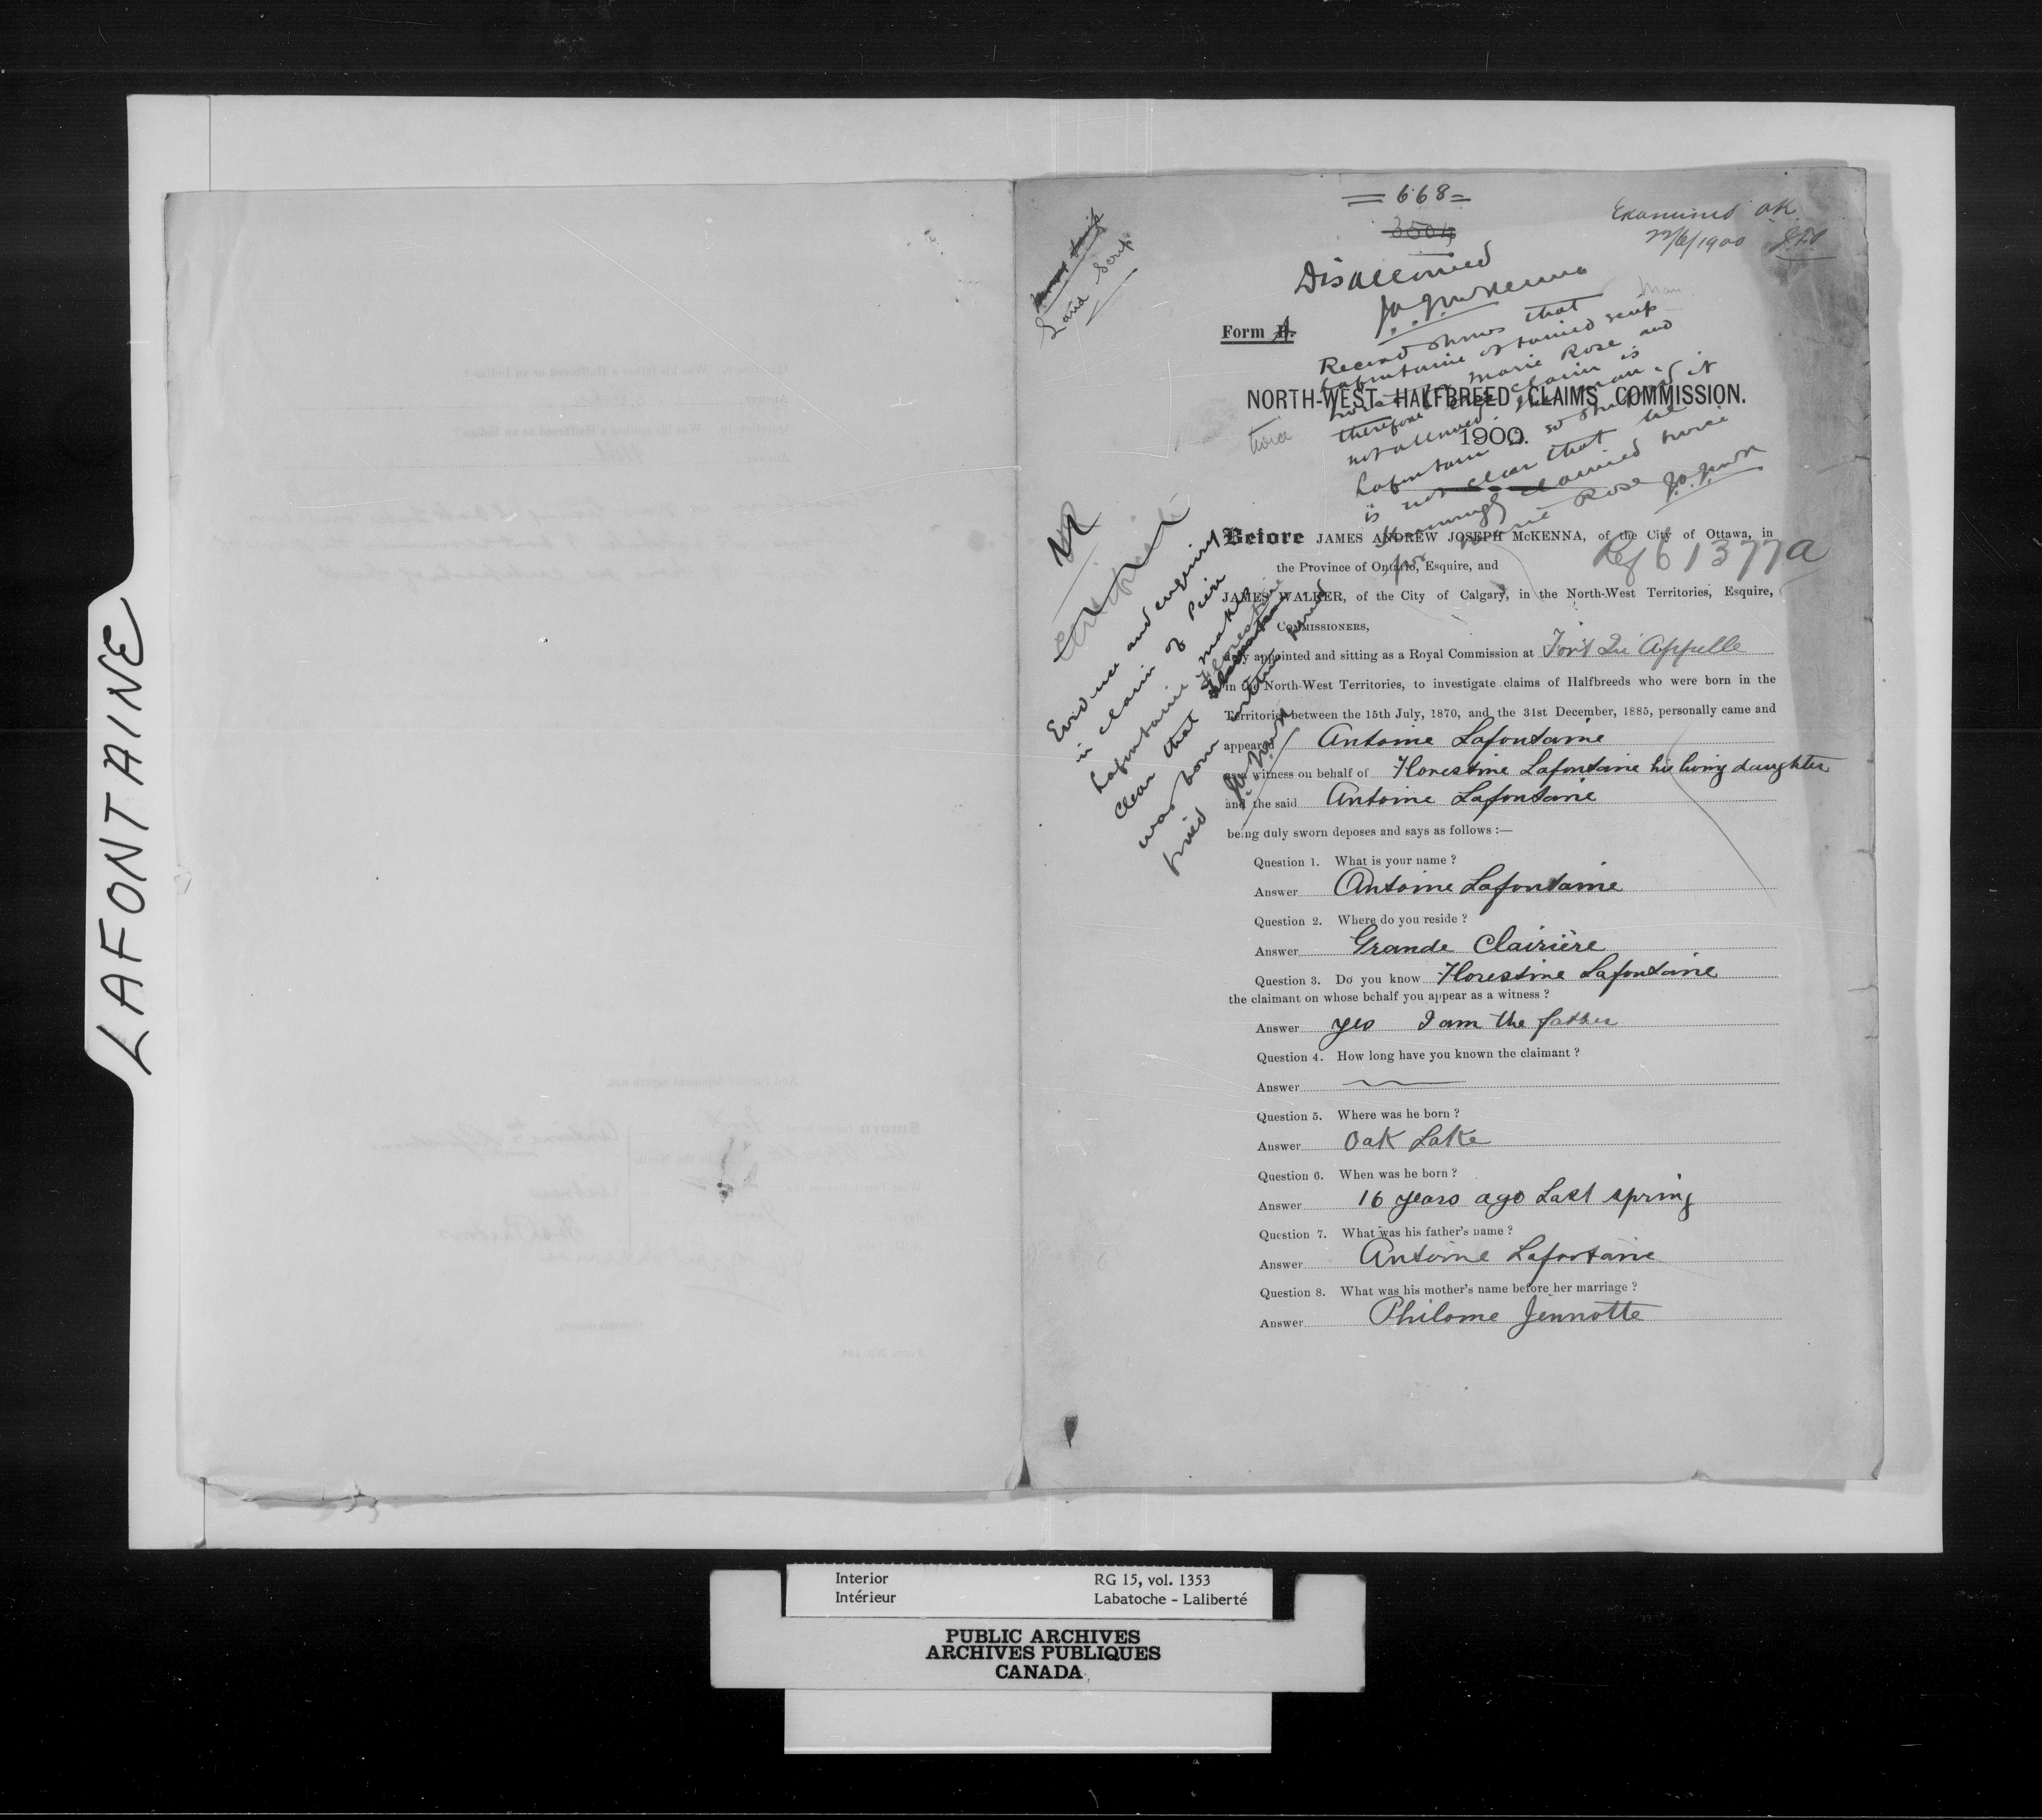 LAFONTAINE
= 668 =
3504
Examined OK
22/6/1900
Land Scrip
Disallowed
Form A.
Record shows that
Lafontaine obtained scrip
Marie Rose and
therefore claim is
not allowed
Lafontaine is so stupid it
is not clear that he
seemingly claimed twice
for Marie Rose
twice
NORTH-WEST HALFBREED CLAIMS COMMISSION.
1900.
Ref 61377a
Evidence and enquiry
in claim of Pierre
Lafontaine makes
clear that Florestine
was born within period
Before JAMES ANDREW JOSEPH McKENNA, of the City of Ottawa, in
the Province of Ontario, Esquire, and
JAMES WALKER, of the City of Calgary, in the North-West Territories, Esquire,
COMMISSIONERS,
duly appointed and sitting as a Royal Commission at Fort Qu'Appelle
in the North-West Territories, to investigate claims of Halfbreeds who were born in the
Territories between the 15th July, 1870, and the 31st December, 1885, personally came and
appeared Antoine Lafontaine
as a witness on behalf of Florestine Lafontaine his living daughter
and the said Antoine Lafontaine
being duly sworn deposes and says as follows :—
Question 1. What is your name ?
Answer Antoine Lafontaine
Question 2. Where do you reside ?
Answer Grande Clairière
Question 3. Do you know Florestine Lafontaine
the claimant on whose behalf you appear as a witness ?
Answer yes I am the father
Question 4. How long have you known the claimant ?
Answer
Question 5. Where was he born ?
Answer Oak Lake
Question 6. When was he born ?
Answer 16 years ago Last spring
Question 7. What was his father's name ?
Answer Antoine Lafontaine
Question 8. What was his mother's name before her marriage ?
Answer Philome Jennotte
Interior RG 15, vol. 1353
Intérieur Labatoche - Laliberté
PUBLIC ARCHIVES
ARCHIVES PUBLIQUES
CANADA